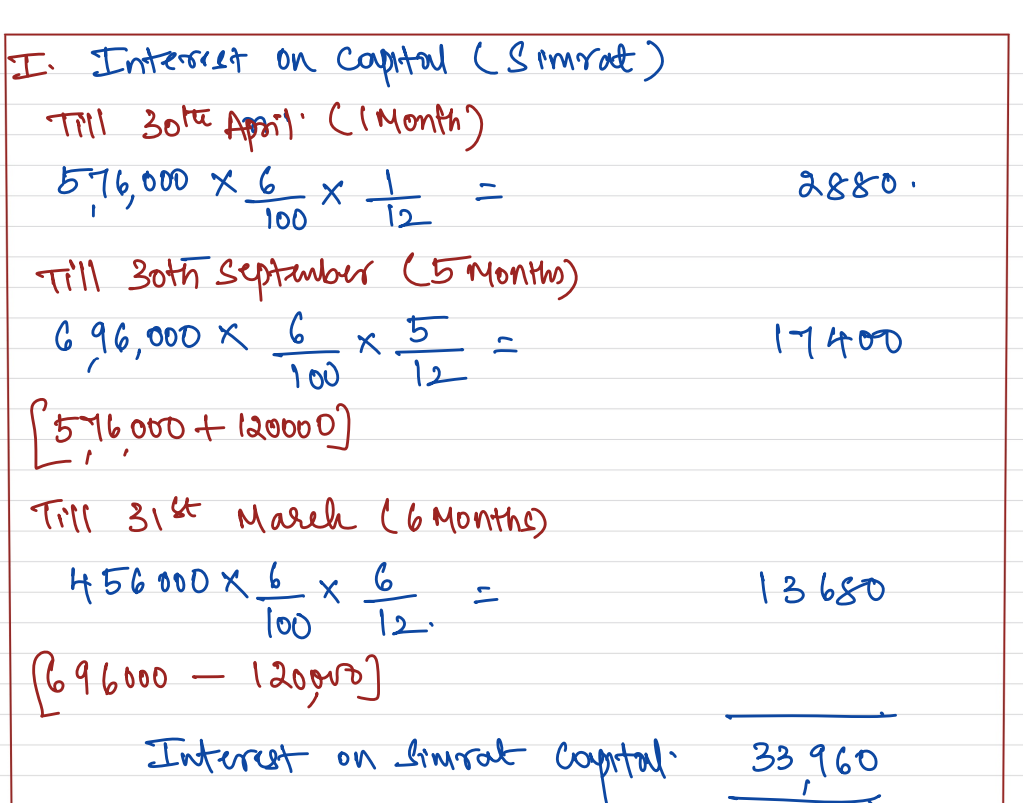 I. Interest on Capital (Simrat)
Till 30th April. (1 Month)
5,76,000 × 6/100 × 1/12 = 2880.
Till 30th September (5 Months)
6,96,000 × 6/100 × 5/12 = 17400
[5,76,000 + 120000]
Till 31st March (6 Months)
456000 × 6/100 × 6/12. = 13680
[696000 — 120,000]
Interest on Simrat Capital. 33,960